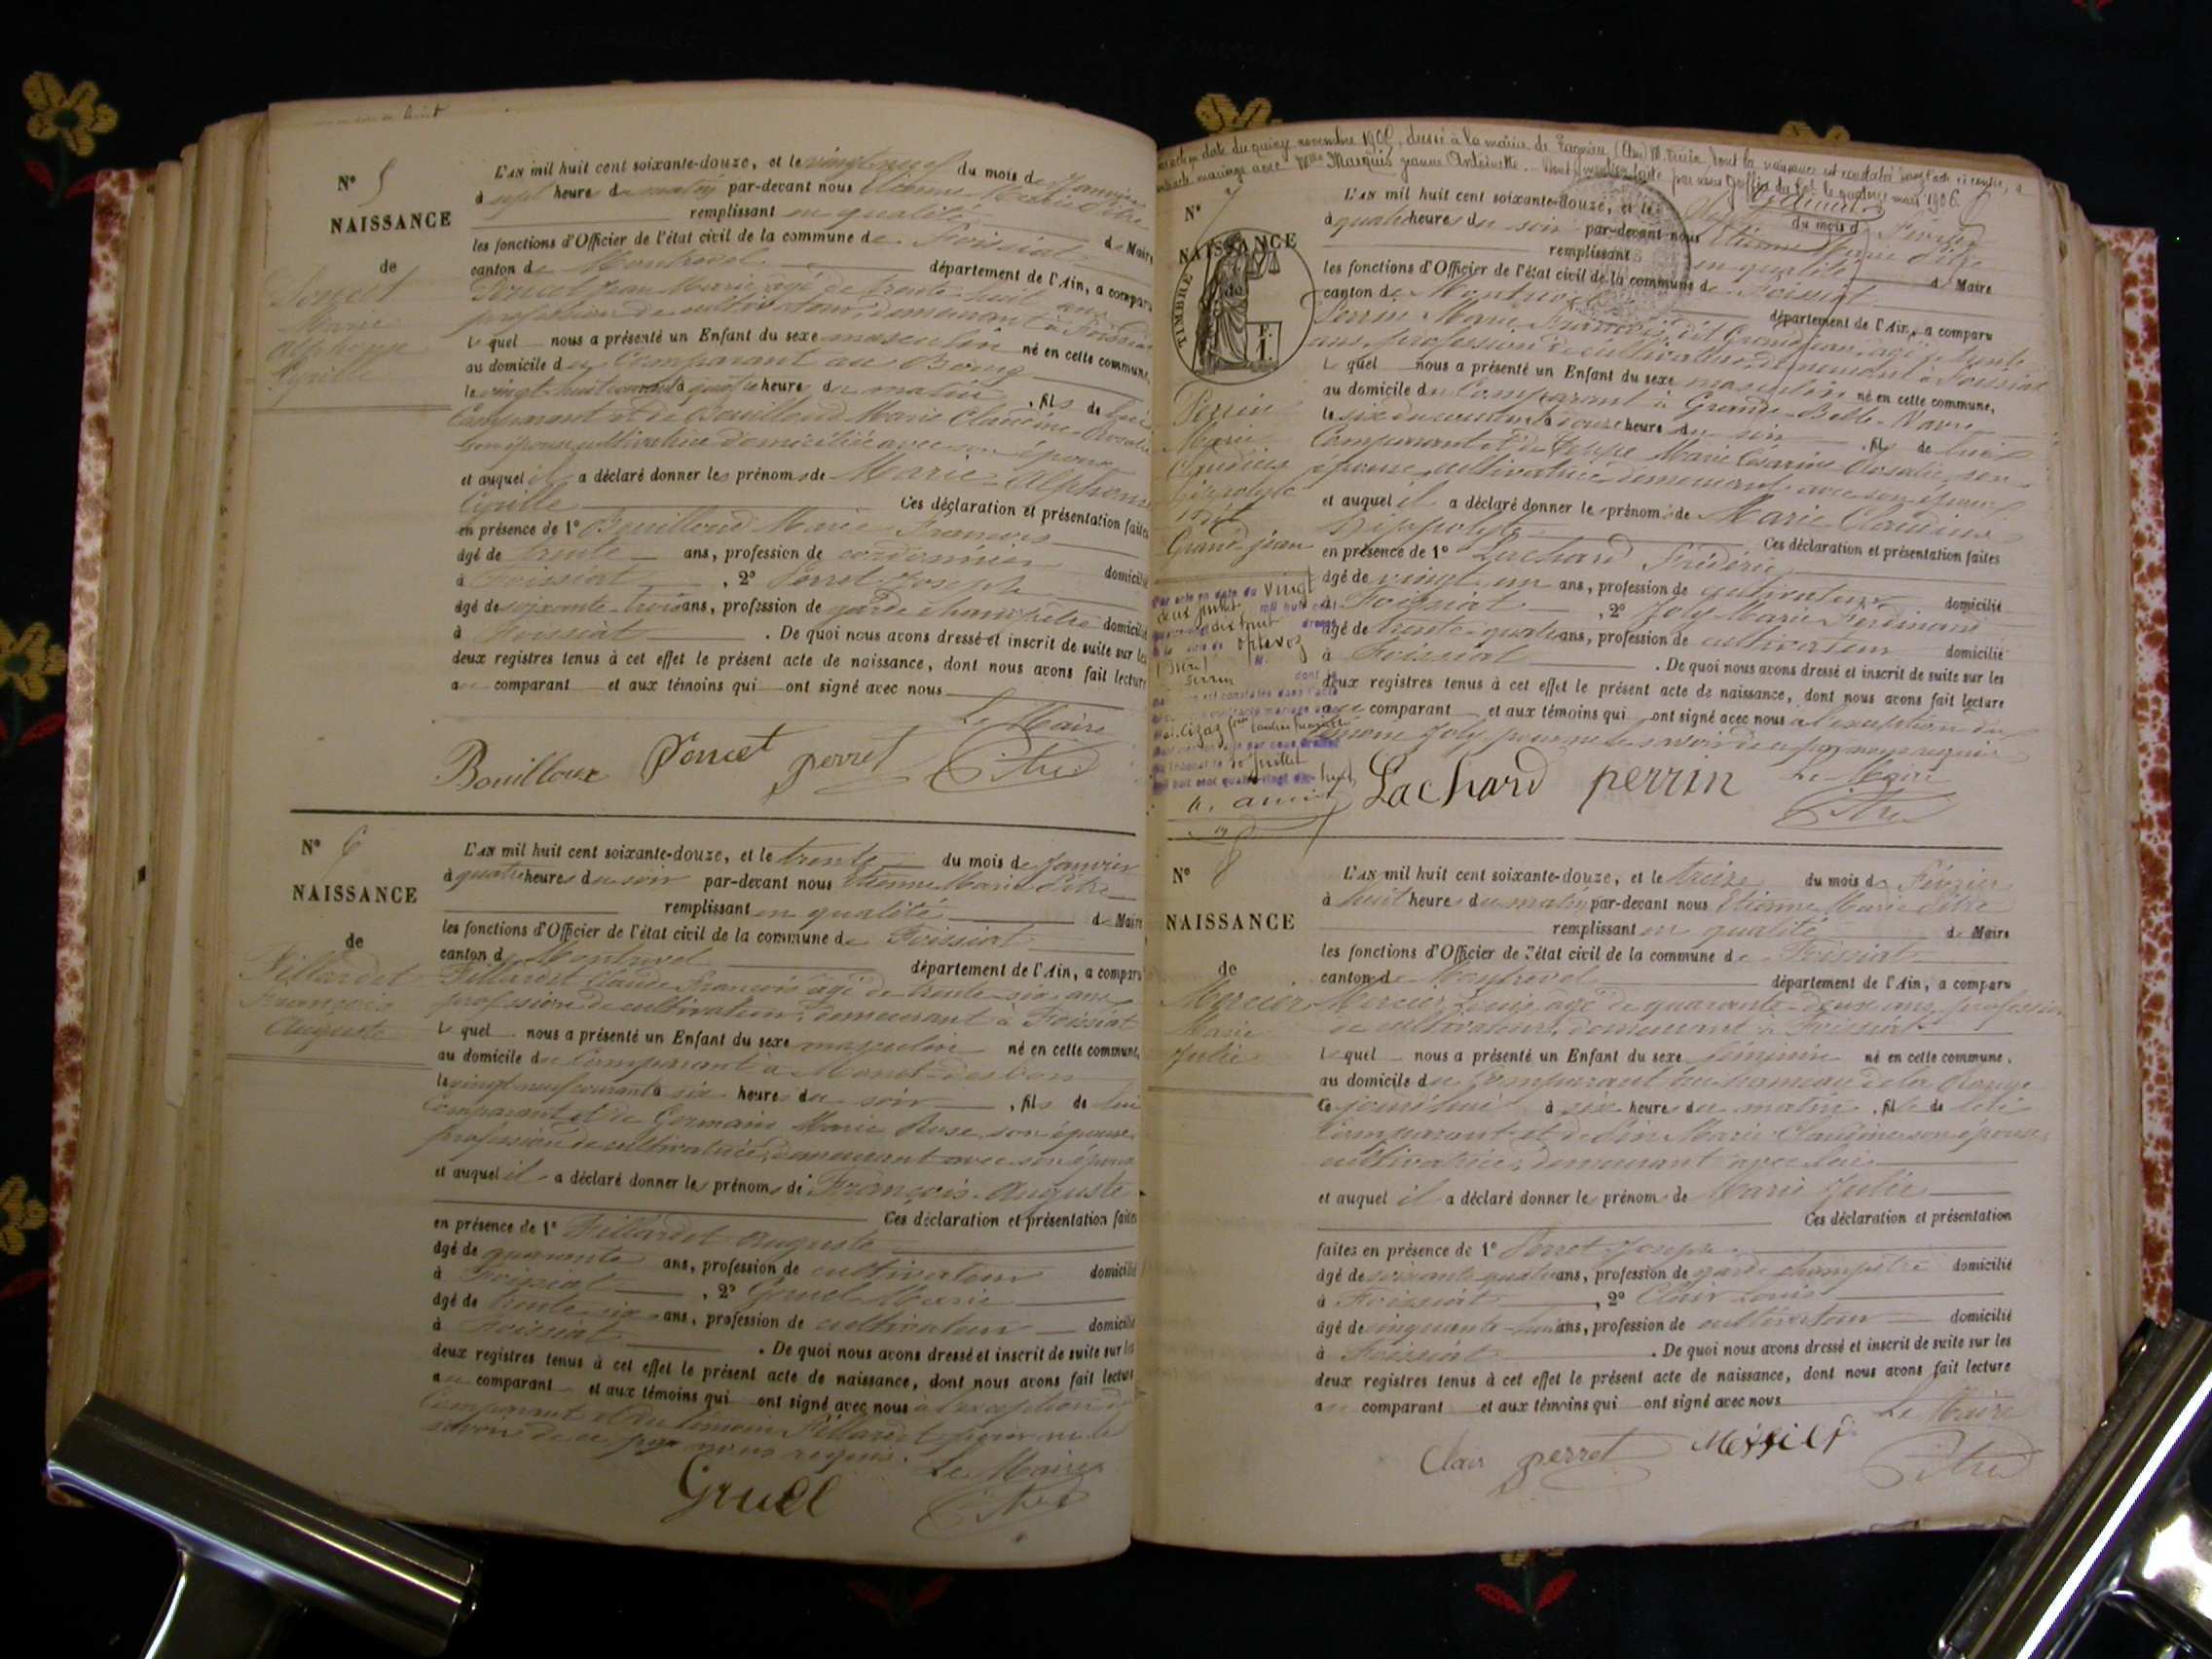 Nº 5
NAISSANCE
de
Poncet
Marie
Alphonse
Cyrille
L'AN mil huit cent soixante-douze, et le vingt neuf du mois de Janvier
à sept heure du matin par-devant nous Etienne Marie Pitre
remplissant en qualité de Maire
les fonctions d'Officier de l'état civil de la commune de Foissiat
canton de Montrevel département de l'Ain, a comparu
Poncet Jean Marie, agé de trente huit ans
profession de cultivateur, demeurant à Foissiat
Lequel nous a présenté un Enfant du sexe masculin né en cette commune,
au domicile du Comparant au Bourg
le vingt huit courant à quatre heure du matin, fils de lui
Comparant et de Bouilloud Marie Claudine
son épouse cultivatrice domiciliée avec son époux
et auquel il a déclaré donner les prénoms de Marie Alphonse
Cyrille Ces déclaration et présentation faites
en présence de 1º Bouilloud Marie François
âgé de trente ans, profession de cordonnier domicilié
à Foissiat, 2º Perret Joseph
âgé de soixante-trois ans, profession de garde champêtre domicilié
à Foissiat. De quoi nous avons dressé et inscrit de suite sur les
deux registres tenus à cet effet le présent acte de naissance, dont nous avons fait lecture
au comparant et aux témoins qui ont signé avec nous
Le Maire
Bouilloux Poncet perret Pitre
Nº 6
NAISSANCE
de
Pillardet
François
Auguste
L'AN mil huit cent soixante-douze, et le trente du mois de Janvier
à quatre heures du soir par-devant nous Etienne Marie Pitre
remplissant en qualité de Maire
les fonctions d'Officier de l'état civil de la commune de Foissiat
canton de Montrevel département de l'Ain, a comparu
Pillardet Claude François agé de trente six ans
profession de cultivateur, demeurant à Foissiat
Lequel nous a présenté un Enfant du sexe masculin né en cette commune,
au domicile du Comparant à
le vingt neuf courant à six heures du soir, fils de lui
Comparant et de Germain Marie Rose, son épouse
profession de cultivatrice, demeurant avec son époux
et auquel il a déclaré donner les prénoms de François Auguste
Ces déclaration et présentation faites
en présence de 1º Pillardet Auguste
âgé de quarante ans, profession de cultivateur domicilié
à Foissiat, 2º Gruel Marie
âgé de trente six ans, profession de cultivateur domicilié
à Foissiat. De quoi nous avons dressé et inscrit de suite sur les
deux registres tenus à cet effet le présent acte de naissance, dont nous avons fait lecture
au comparant et aux témoins qui ont signé avec nous à l'exception du
Comparant et du témoin Pillardet pour ne le
savoir de ce par nous requis.
Le Maire
Gruel Pitre
acte en date du quinze novembre 1905, dressé à la mairie de Lagnieu (Ain) M. Perrin, dont la naissance est constatée dans l'acte ci-contre, a
contracté mariage avec Mlle Marquis Jeanne Antoinette. Mention faite par nous Greffier le quatorze mars 1906.
Nº 7
NAISSANCE
de
TIMBRE
Perrin
Marie
Claudius
Hippolyte
dit
Grand-jean
L'AN mil huit cent soixante-douze, et le Sept du mois de Février
à quatre heures du soir par-devant nous Etienne Marie Pitre
remplissant en qualité de Maire
les fonctions d'Officier de l'état civil de la commune de Foissiat
canton de Montrevel département de l'Ain, a comparu
Perrin Marie François dit Grandjean, agé de trente
ans, profession de cultivateur, demeurant à Foissiat
Lequel nous a présenté un Enfant du sexe masculin né en cette commune,
au domicile du Comparant à Grande Belle-Vavre
le six du courant à onze heure du soir, fils de lui
Comparant et de Marie Césarine Rosalie, son
épouse cultivatrice demeurant avec son époux
et auquel il a déclaré donner les prénoms de Marie Claudius
Hippolyte Ces déclaration et présentation faites
en présence de 1º Lachard Frédéric
âgé de vingt un ans, profession de cultivateur domicilié
à Foissiat, 2º Joly Marie Ferdinand
âgé de trente quatre ans, profession de cultivateur domicilié
à Foissiat. De quoi nous avons dressé et inscrit de suite sur les
deux registres tenus à cet effet le présent acte de naissance, dont nous avons fait lecture
au comparant et aux témoins qui ont signé avec nous à l'exception du
témoin Joly pour ne le savoir de ce par nous requis
Le Maire
Lachard perrin Pitre
Par acte en date du vingt
deux juillet mil huit cent
dix huit dressé
Optevoz
(Isère)
Perrin dont la
contracté mariage avec
30 juillet
Nº 8
NAISSANCE
de
Mercier
Marie
Julie
L'AN mil huit cent soixante-douze, et le treize du mois de Février
à huit heures du matin par-devant nous Etienne Marie Pitre
remplissant en qualité de Maire
les fonctions d'Officier de l'état civil de la commune de Foissiat
canton de Montrevel département de l'Ain, a comparu
Mercier Louis, agé de quarante-deux ans, profession
de cultivateur, demeurant à Foissiat
Lequel nous a présenté un Enfant du sexe féminin né en cette commune,
au domicile du Comparant au hameau de la
Ce jourd'hui à six heures du matin, fille de lui
Comparant et de Pin Marie Claudine son épouse
cultivatrice, demeurant avec lui
et auquel il a déclaré donner les prénoms de Marie Julie
Ces déclaration et présentation
faites en présence de 1º Perret Joseph
âgé de soixante quatre ans, profession de garde champêtre domicilié
à Foissiat, 2º Clair Louis
âgé de cinquante-huit ans, profession de cultivateur domicilié
à Foissiat. De quoi nous avons dressé et inscrit de suite sur les
deux registres tenus à cet effet le présent acte de naissance, dont nous avons fait lecture
au comparant et aux témoins qui ont signé avec nous
Le Maire
Clair perret Pitre